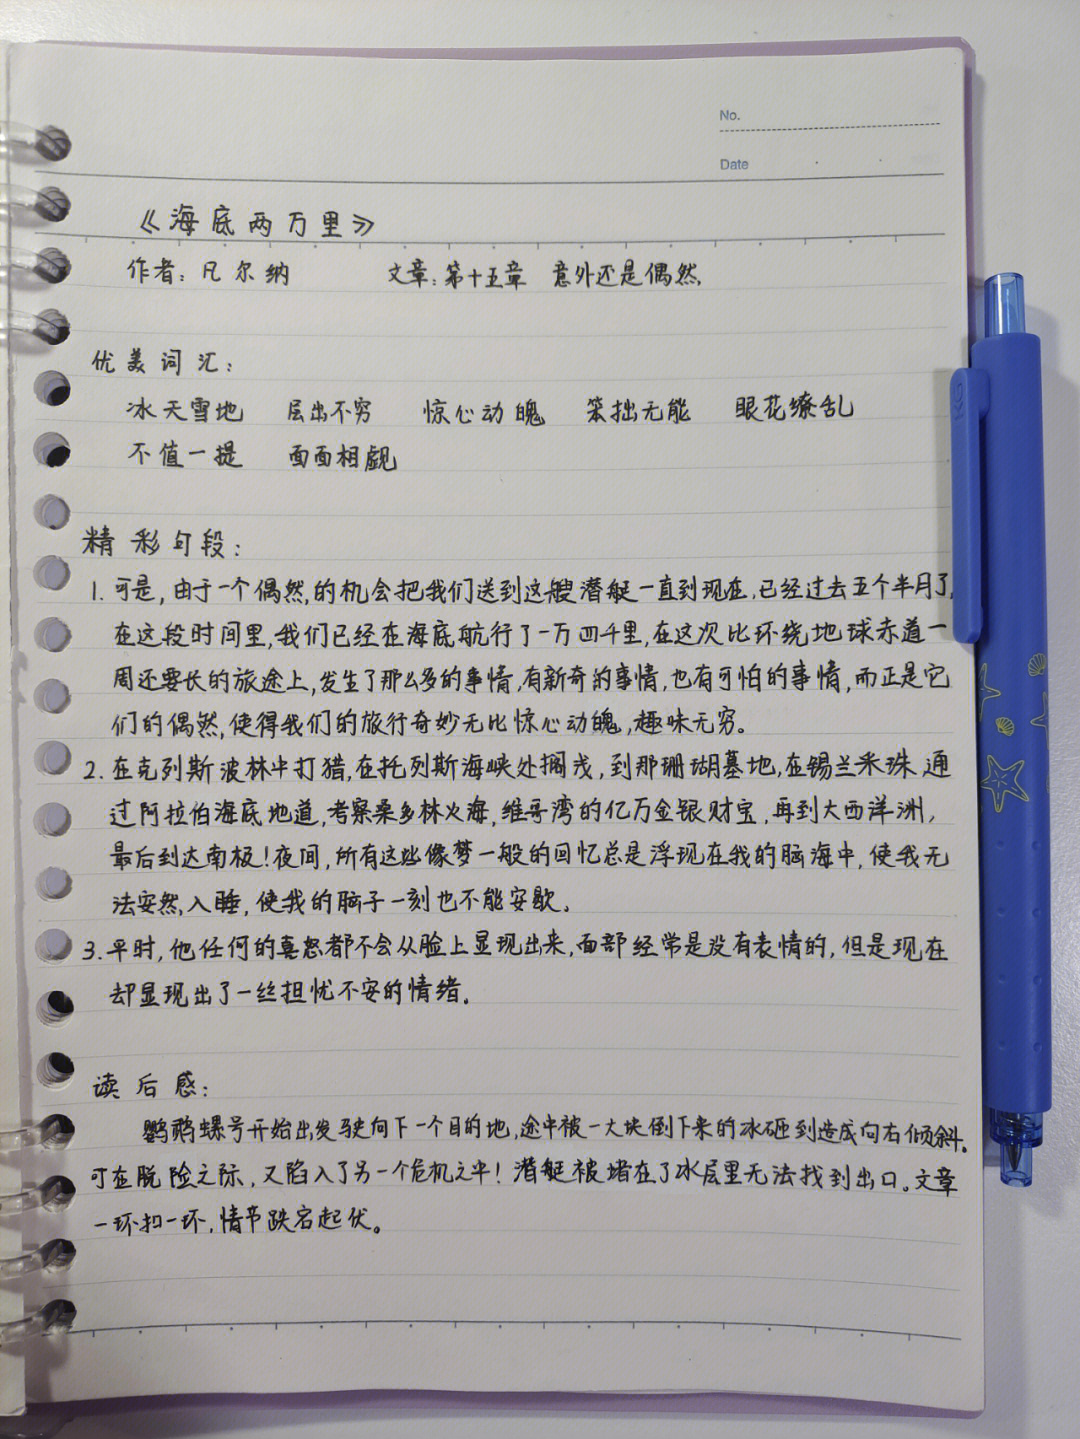 No.
Date
《海底两万里》
作者：凡尔纳 文章：第十五章 意外还是偶然
优美词汇：
冰天雪地 层出不穷 惊心动魄 笨拙无能 眼花缭乱
不值一提 面面相觑
精彩句段：
1. 可是，由于一个偶然的机会把我们送到这艘潜艇一直到现在，已经过去五个半月了，
在这段时间里，我们已经在海底航行了一万四千里，在这次比环绕地球赤道一
周还要长的旅途上，发生了那么多的事情，有新奇的事情，也有可怕的事情，而正是它
们的偶然，使得我们的旅行奇妙无比惊心动魄，趣味无穷。
2. 在克列斯波林中打猎，在托列斯海峡处搁浅，到那珊瑚墓地，在锡兰采珠，通
过阿拉伯海底地道，考察桑多林火海，维哥湾的亿万金银财宝，再到大西洋洲，
最后到达南极！夜间，所有这些像梦一般的回忆总是浮现在我的脑海中，使我无
法安然入睡，使我的脑子一刻也不能安歇。
3. 平时，他任何的喜怒都不会从脸上显现出来，面部经常是没有表情的，但是现在
却显现出了一丝担忧不安的情绪。
读后感：
鹦鹉螺号开始出发驶向下一个目的地，途中被一大块倒下来的冰砸到造成向右倾斜。
可在脱险之际，又陷入了另一个危机之中！潜艇被堵在了冰层里无法找到出口。文章
一环扣一环，情节跌宕起伏。